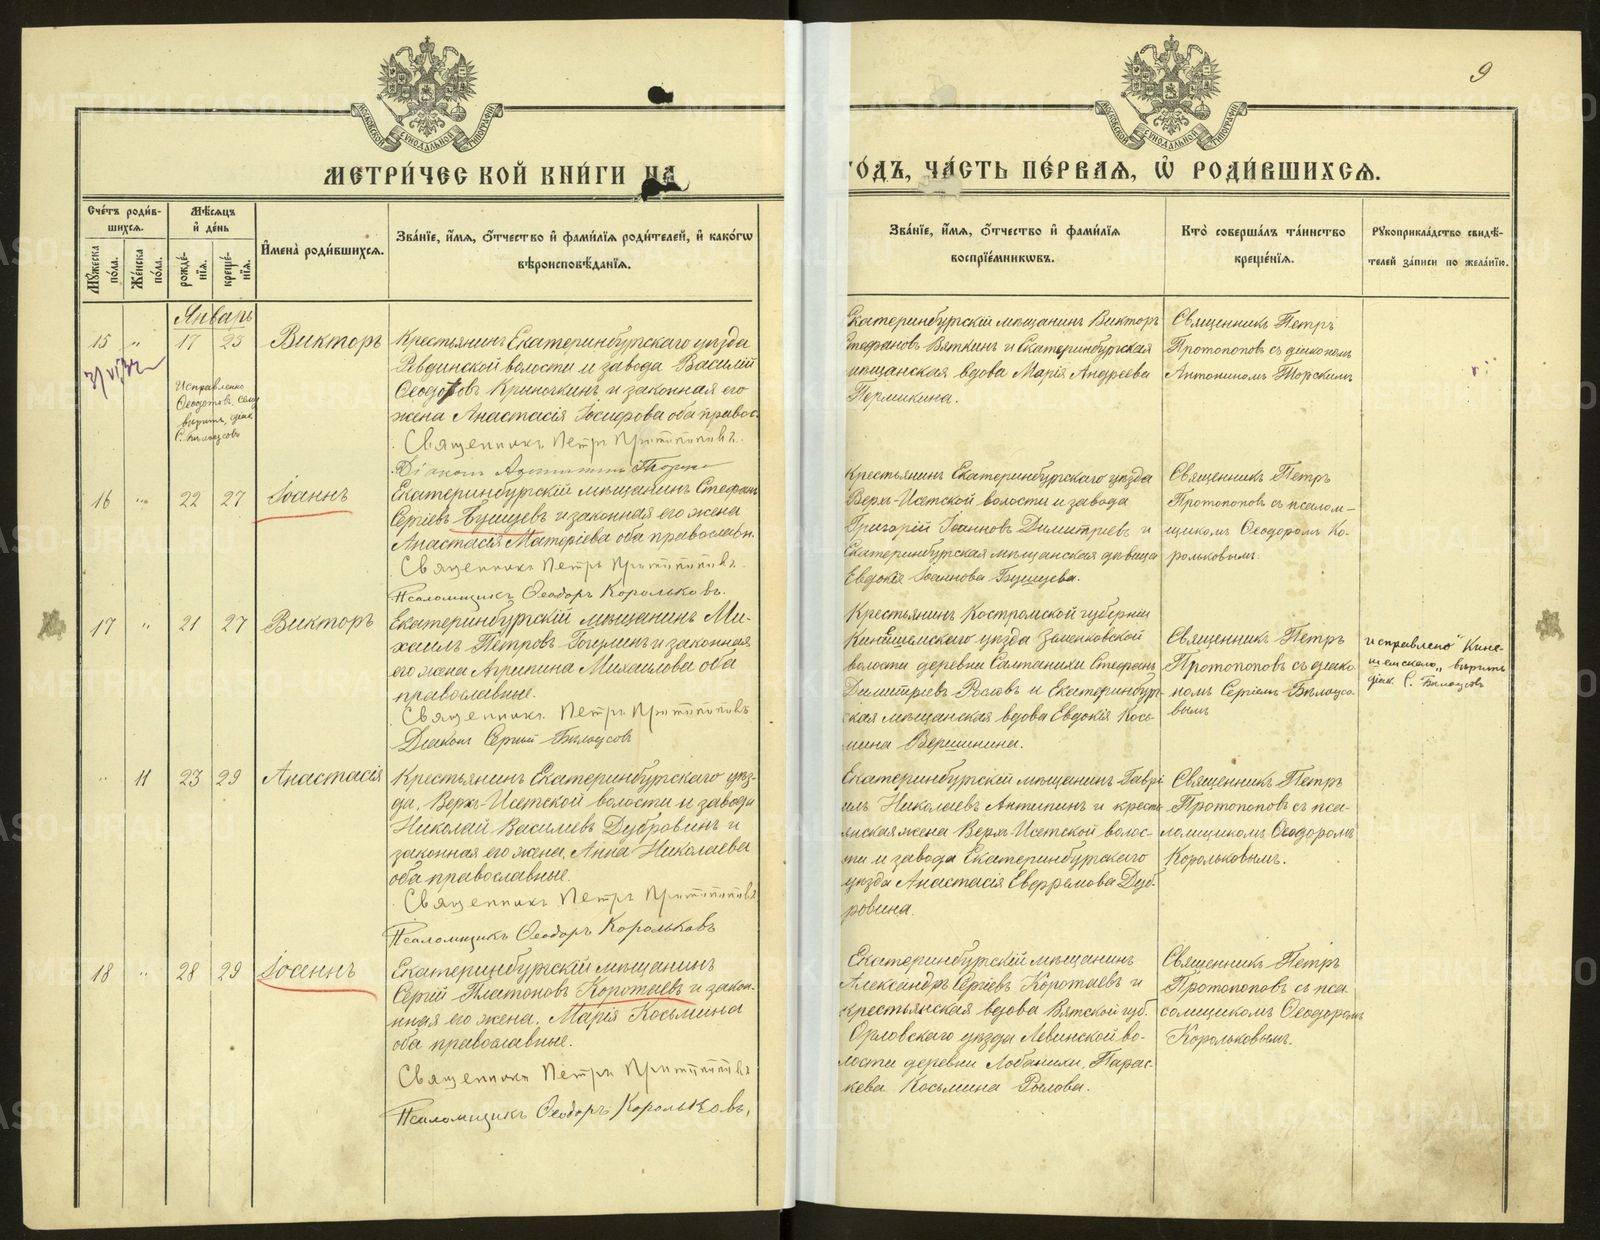 9
МЕТРИ́ЧЕСКОЙ КНИ́ГИ НА
ГО́ДЪ, ЧА́СТЬ ПЕ́РВАЯ, Ѡ҆ РОДИ́ВШИХСЯ.
Сче́тъ роди́в-
шихся.
Мꙋ́жеска по́ла.
Же́нска по́ла.
Мѣ́сяцъ
и҆ де́нь
рожде́-
нїя.
креще́-
нїя.
И҆мена̀ роди́вшихся.
Зва́нїе, и҆́мя, ѻ҆́тчество и҆ фами́лїя роди́телей, и҆ како́гѡ
вѣроисповѣ́данїя.
Зва́нїе, и҆́мя, ѻ҆́тчество и҆ фами́лїя
воспрїе́мникѡвъ.
Кто̀ соверша́лъ та́инство
креще́нїя.
Рꙋкоприкла́дство свидѣ́-
телей за́писи по жела́нїю.
Январь
15 " 17 23 Викторъ
Исправлено
Ѳеодотов
Крестьянинъ Екатеринбургскаго уѣзда
Ревдинской волости и завода Василій
Ѳеодотовъ Крючкинъ и законная его
жена Анастасія Іосифова оба правос.
Священникъ Петръ Протопоповъ.
Діаконъ Антонинъ Торскій
Екатеринбургскій мѣщанинъ Викторъ
Стефановъ Вяткинъ и Екатеринбургская
мѣщанская вдова Марія Андреева
Пермикина.
Священникъ Петръ
Протопоповъ съ діакономъ
Антониномъ Торскимъ
16 " 22 27 Іоаннъ
Екатеринбургскій мѣщанинъ Стефанъ
Сергіевъ Бушуевъ и законная его жена
Анастасія Матѳіева оба православн.
Священникъ Петръ Протопоповъ.
Псаломщикъ Ѳеодоръ Корольковъ.
Крестьянинъ Екатеринбургскаго уѣзда
Верх-Исетской волости и завода
Григорій Іоанновъ Димитріевъ и
Екатеринбургская мѣщанская дѣвица
Евдокія Іоаннова Бушуева.
Священникъ Петръ
Протопоповъ съ псалом-
щикомъ Ѳеодоромъ Ко-
рольковымъ.
17 " 21 27 Викторъ
Екатеринбургскій мѣщанинъ Ми-
хаилъ Петровъ и законная
его жена Агрипина Михаилова оба
православные.
Священникъ Петръ Протопоповъ
Діаконъ Сергій Бѣлоусовъ
Крестьянинъ Костромской губерніи
Кинешемскаго уѣзда Зименковской
волости деревни Салтанихи Стефанъ
Димитріевъ Рословъ и Екатеринбург-
ская мѣщанская вдова Евдокія Кось-
мина Вершинина.
Священникъ Петръ
Протопоповъ съ діако-
номъ Сергіемъ Бѣлоусо-
вымъ
исправлено "Кине-
шемскаго" вѣрить
діак. С. Бѣлоусовъ
" 11 23 29 Анастасія
Крестьянинъ Екатеринбургскаго уѣз-
да, Верх-Исетской волости и завода
Николай Василіевъ Дубровинъ и
законная его жена, Анна Николаева
оба православные.
Священникъ Петръ Протопоповъ
Псаломщикъ Ѳеодоръ Корольковъ
Екатеринбургскій мѣщанинъ Гаврі-
илъ Николаевъ Антипинъ и кресть-
янская жена Верх-Исетской волос-
ти и завода Екатеринбургскаго
уѣзда Анастасія Евфремова Дуб-
ровина.
Священникъ Петръ
Протопоповъ съ пса-
ломщикомъ Ѳеодоромъ
Корольковымъ.
18 " 28 29 Іоаннъ
Екатеринбургскій мѣщанинъ
Сергій Платоновъ Коротаевъ и закон-
ная его жена, Марія Косьмина
оба православные.
Священникъ Петръ Протопоповъ
Псаломщикъ Ѳеодоръ Корольковъ.
Екатеринбургскій мѣщанинъ
Александръ Сергіевъ Коротаевъ и
крестьянская вдова Вятской губ.
Орловскаго уѣзда Левинской во-
лости деревни Лобанихи, Парас-
кева Косьмина Рослова.
Священникъ Петръ
Протопоповъ съ пса-
ломщикомъ Ѳеодоромъ
Корольковымъ.